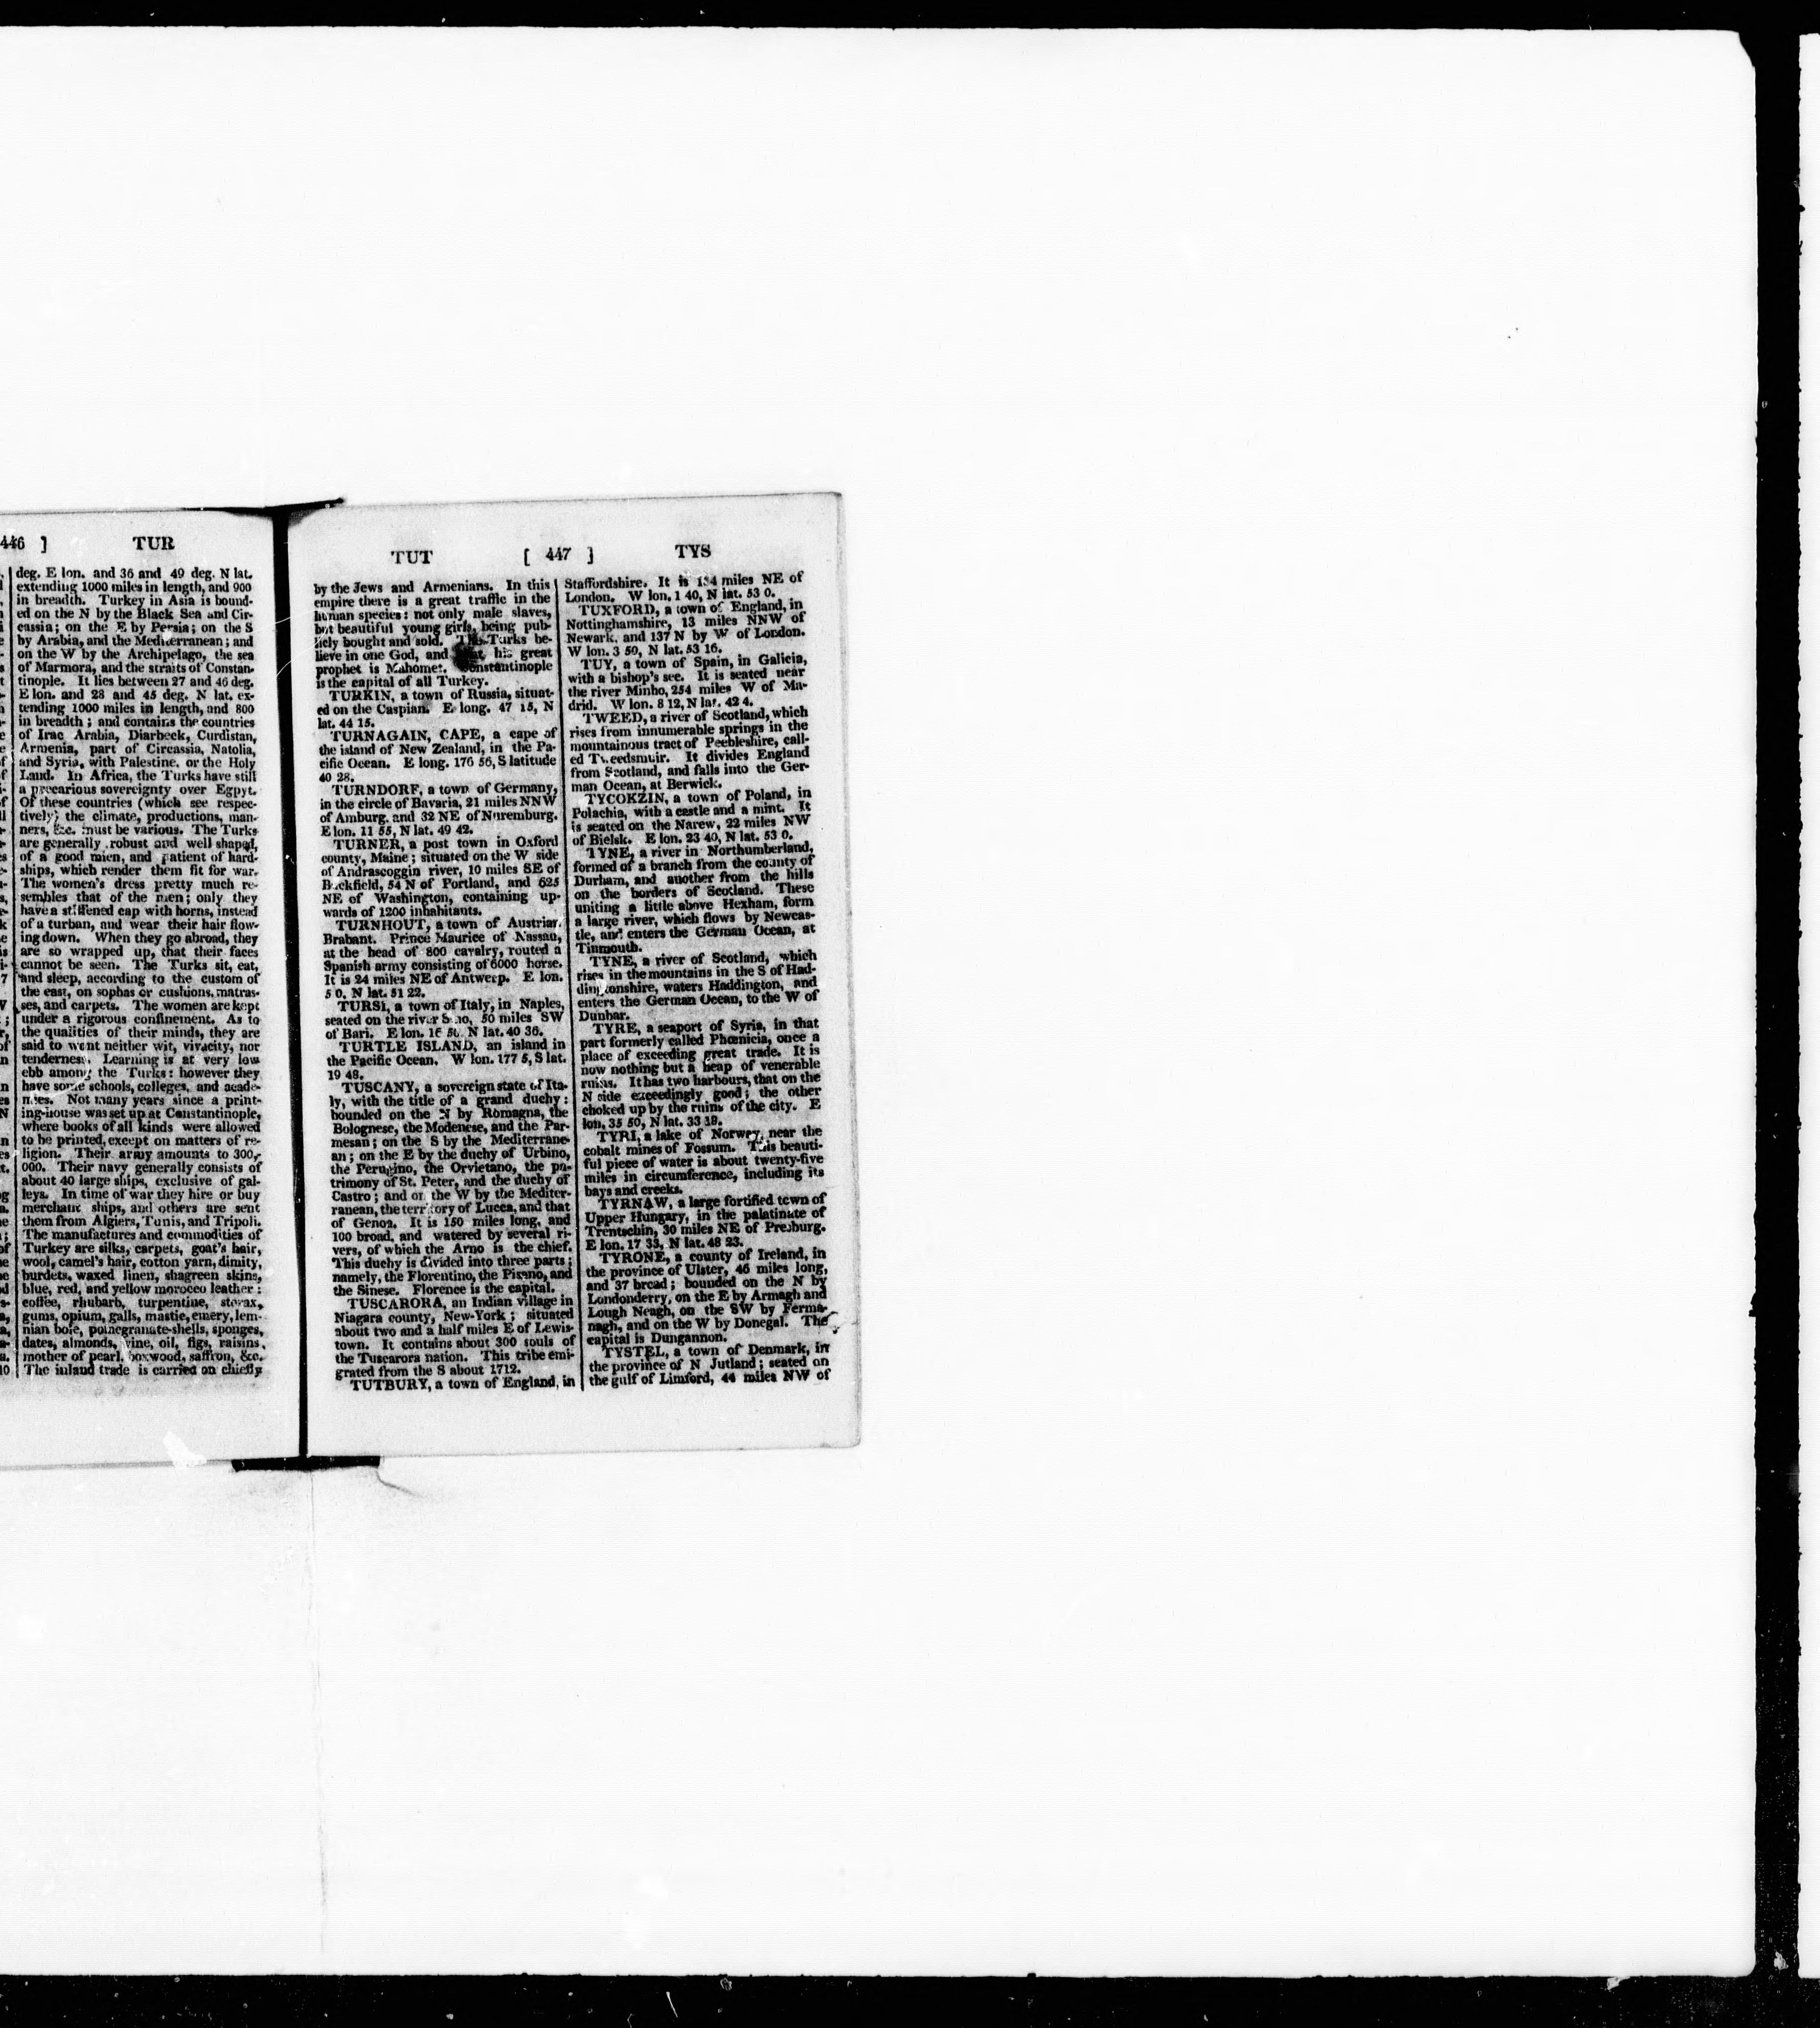 446 ] TUR
deg. E lon. and 36 and 49 deg. N lat.
extending 1000 miles in length, and 900
in breadth. Turkey in Asia is bound-
ed on the N by the Black Sea and Cir-
cassia; on the E by Persia; on the S
by Arabia, and the Mediterranean; and
on the W by the Archipelago, the sea
of Marmora, and the straits of Constan-
tinople. It lies between 27 and 46 deg.
E lon. and 28 and 45 deg. N lat. ex-
tending 1000 miles in length, and 800
in breadth; and contains the countries
of Irac Arabia, Diarbeck, Curdistan,
Armenia, part of Circassia, Natolia,
and Syria, with Palestine, or the Holy
Land. In Africa, the Turks have still
a precarious sovereignty over Egpyt.
Of these countries (which see respec-
tively) the climate, productions, man-
ners, &c. must be various. The Turks
are generally robust and well shaped,
of a good mien, and patient of hard-
ships, which render them fit for war.
The women's dress pretty much re-
sembles that of the men; only they
have a stiffened cap with horns, instead
of a turban, and wear their hair flow-
ing down. When they go abroad, they
are so wrapped up, that their faces
cannot be seen. The Turks sit, eat,
and sleep, according to the custom of
the east, on sophas or cushions, matras-
ses, and carpets. The women are kept
under a rigorous confinement. As to
the qualities of their minds, they are
said to want neither wit, vivacity, nor
tenderness. Learning is at very low
ebb among the Turks: however they
have some schools, colleges, and acade-
mies. Not many years since a print-
ing-house was set up at Constantinople,
where books of all kinds were allowed
to be printed, except on matters of re-
ligion. Their army amounts to 300,-
000. Their navy generally consists of
about 40 large ships, exclusive of gal-
leys. In time of war they hire or buy
merchant ships, and others are sent
them from Algiers, Tunis, and Tripoli.
The manufactures and commodities of
Turkey are silks, carpets, goat's hair,
wool, camel's hair, cotton yarn, dimity,
burdets, waxed linen, shagreen skins,
blue, red, and yellow morocco leather:
coffee, rhubarb, turpentine, storax,
gums, opium, galls, mastic, emery, lem-
nian bole, pomegranate-shells, sponges,
dates, almonds, wine, oil, figs, raisins,
mother of pearl, boxwood, saffron, &c.
The inland trade is carried on chiefly
TUT [ 447 ] TYS
by the Jews and Armenians. In this
empire there is a great traffic in the
human species: not only male slaves,
but beautiful young girls, being pub-
licly bought and sold. The Turks be-
lieve in one God, and that his great
prophet is Mahomet. Constantinople
is the capital of all Turkey.
TURKIN, a town of Russia, situat-
ed on the Caspian. E long. 47 15, N
lat. 44 15.
TURNAGAIN, CAPE, a cape of
the island of New Zealand, in the Pa-
cific Ocean. E long. 176 56, S latitude
40 28.
TURNDORF, a town of Germany,
in the circle of Bavaria, 21 miles NNW
of Amburg, and 32 NE of Nuremburg.
E lon. 11 55, N lat. 49 42.
TURNER, a post town in Oxford
county, Maine; situated on the W side
of Andrascoggin river, 10 miles SE of
Buckfield, 54 N of Portland, and 625
NE of Washington, containing up-
wards of 1200 inhabitants.
TURNHOUT, a town of Austrian
Brabant. Prince Maurice of Nassau,
at the head of 800 cavalry, routed a
Spanish army consisting of 6000 horse.
It is 24 miles NE of Antwerp. E lon.
5 0, N lat. 51 22.
TURSI, a town of Italy, in Naples,
seated on the river 50 miles SW
of Bari. E lon. N lat. 40 36.
TURTLE ISLAND, an island in
the Pacific Ocean. W lon. 177 5, S lat.
19 48.
TUSCANY, a sovereign state of Ita-
ly, with the title of a grand duchy:
bounded on the N by Romagna, the
Bolognese, the Modenese, and the Par-
mesan; on the S by the Mediterrane-
an; on the E by the duchy of Urbino,
the Perugino, the Orvietano, the pa-
trimony of St. Peter, and the duchy of
Castro; and on the W by the Mediter-
ranean, the territory of Lucca, and that
of Genoa. It is 150 miles long, and
100 broad, and watered by several ri-
vers, of which the Arno is the chief.
This duchy is divided into three parts;
namely, the Florentino, the Pisano, and
the Sinese. Florence is the capital.
TUSCARORA, an Indian village in
Niagara county, New-York; situated
about two and a half miles E of Lewis-
town. It contains about 300 souls of
the Tuscarora nation. This tribe emi-
grated from the S about 1712.
TUTBURY, a town of England, in
Staffordshire. It is 134 miles NE of
London. W lon. 1 40, N lat. 53 0.
TUXFORD, a town of England, in
Nottinghamshire, 13 miles NNW of
Newark, and 137 N by W of London.
W lon. 3 50, N lat. 53 16.
TUY, a town of Spain, in Galicia,
with a bishop's see. It is seated near
the river Minho, 254 miles W of Ma-
drid. W lon. 8 12, N lat. 42 4.
TWEED, a river of Scotland, which
rises from innumerable springs in the
mountainous tract of Peebleshire, call-
ed Tweedsmuir. It divides England
from Scotland, and falls into the Ger-
man Ocean, at Berwick.
TYCOKZIN, a town of Poland, in
Polachia, with a castle and a mint. It
is seated on the Narew, 22 miles NW
of Bielsk. E lon. 23 40, N lat. 53 0.
TYNE, a river in Northumberland,
formed of a branch from the county of
Durham, and another from the hills
on the borders of Scotland. These
uniting a little above Hexham, form
a large river, which flows by Newcas-
tle, and enters the German Ocean, at
Tinmouth.
TYNE, a river of Scotland, which
rises in the mountains in the S of Had-
dingtonshire, waters Haddington, and
enters the German Ocean, to the W of
Dunbar.
TYRE, a seaport of Syria, in that
part formerly called Phœnicia, once a
place of exceeding great trade. It is
now nothing but a heap of venerable
ruins. It has two harbours, that on the
N side exceedingly good; the other
choked up by the ruins of the city. E
lon. 35 50, N lat. 33 18.
TYRI, a lake of Norway, near the
cobalt mines of Fossum. This beauti-
ful piece of water is about twenty-five
miles in circumference, including its
bays and creeks.
TYRNAW, a large fortified town of
Upper Hungary, in the palatinate of
Trentschin, 30 miles NE of Presburg.
E lon. 17 33, N lat. 48 23.
TYRONE, a county of Ireland, in
the province of Ulster, 46 miles long,
and 37 broad; bounded on the N by
Londonderry, on the E by Armagh and
Lough Neagh, on the SW by Ferma-
nagh, and on the W by Donegal. The
capital is Dungannon.
TYSTEL, a town of Denmark, in
the province of N Jutland; seated on
the gulf of Limford, 44 miles NW of